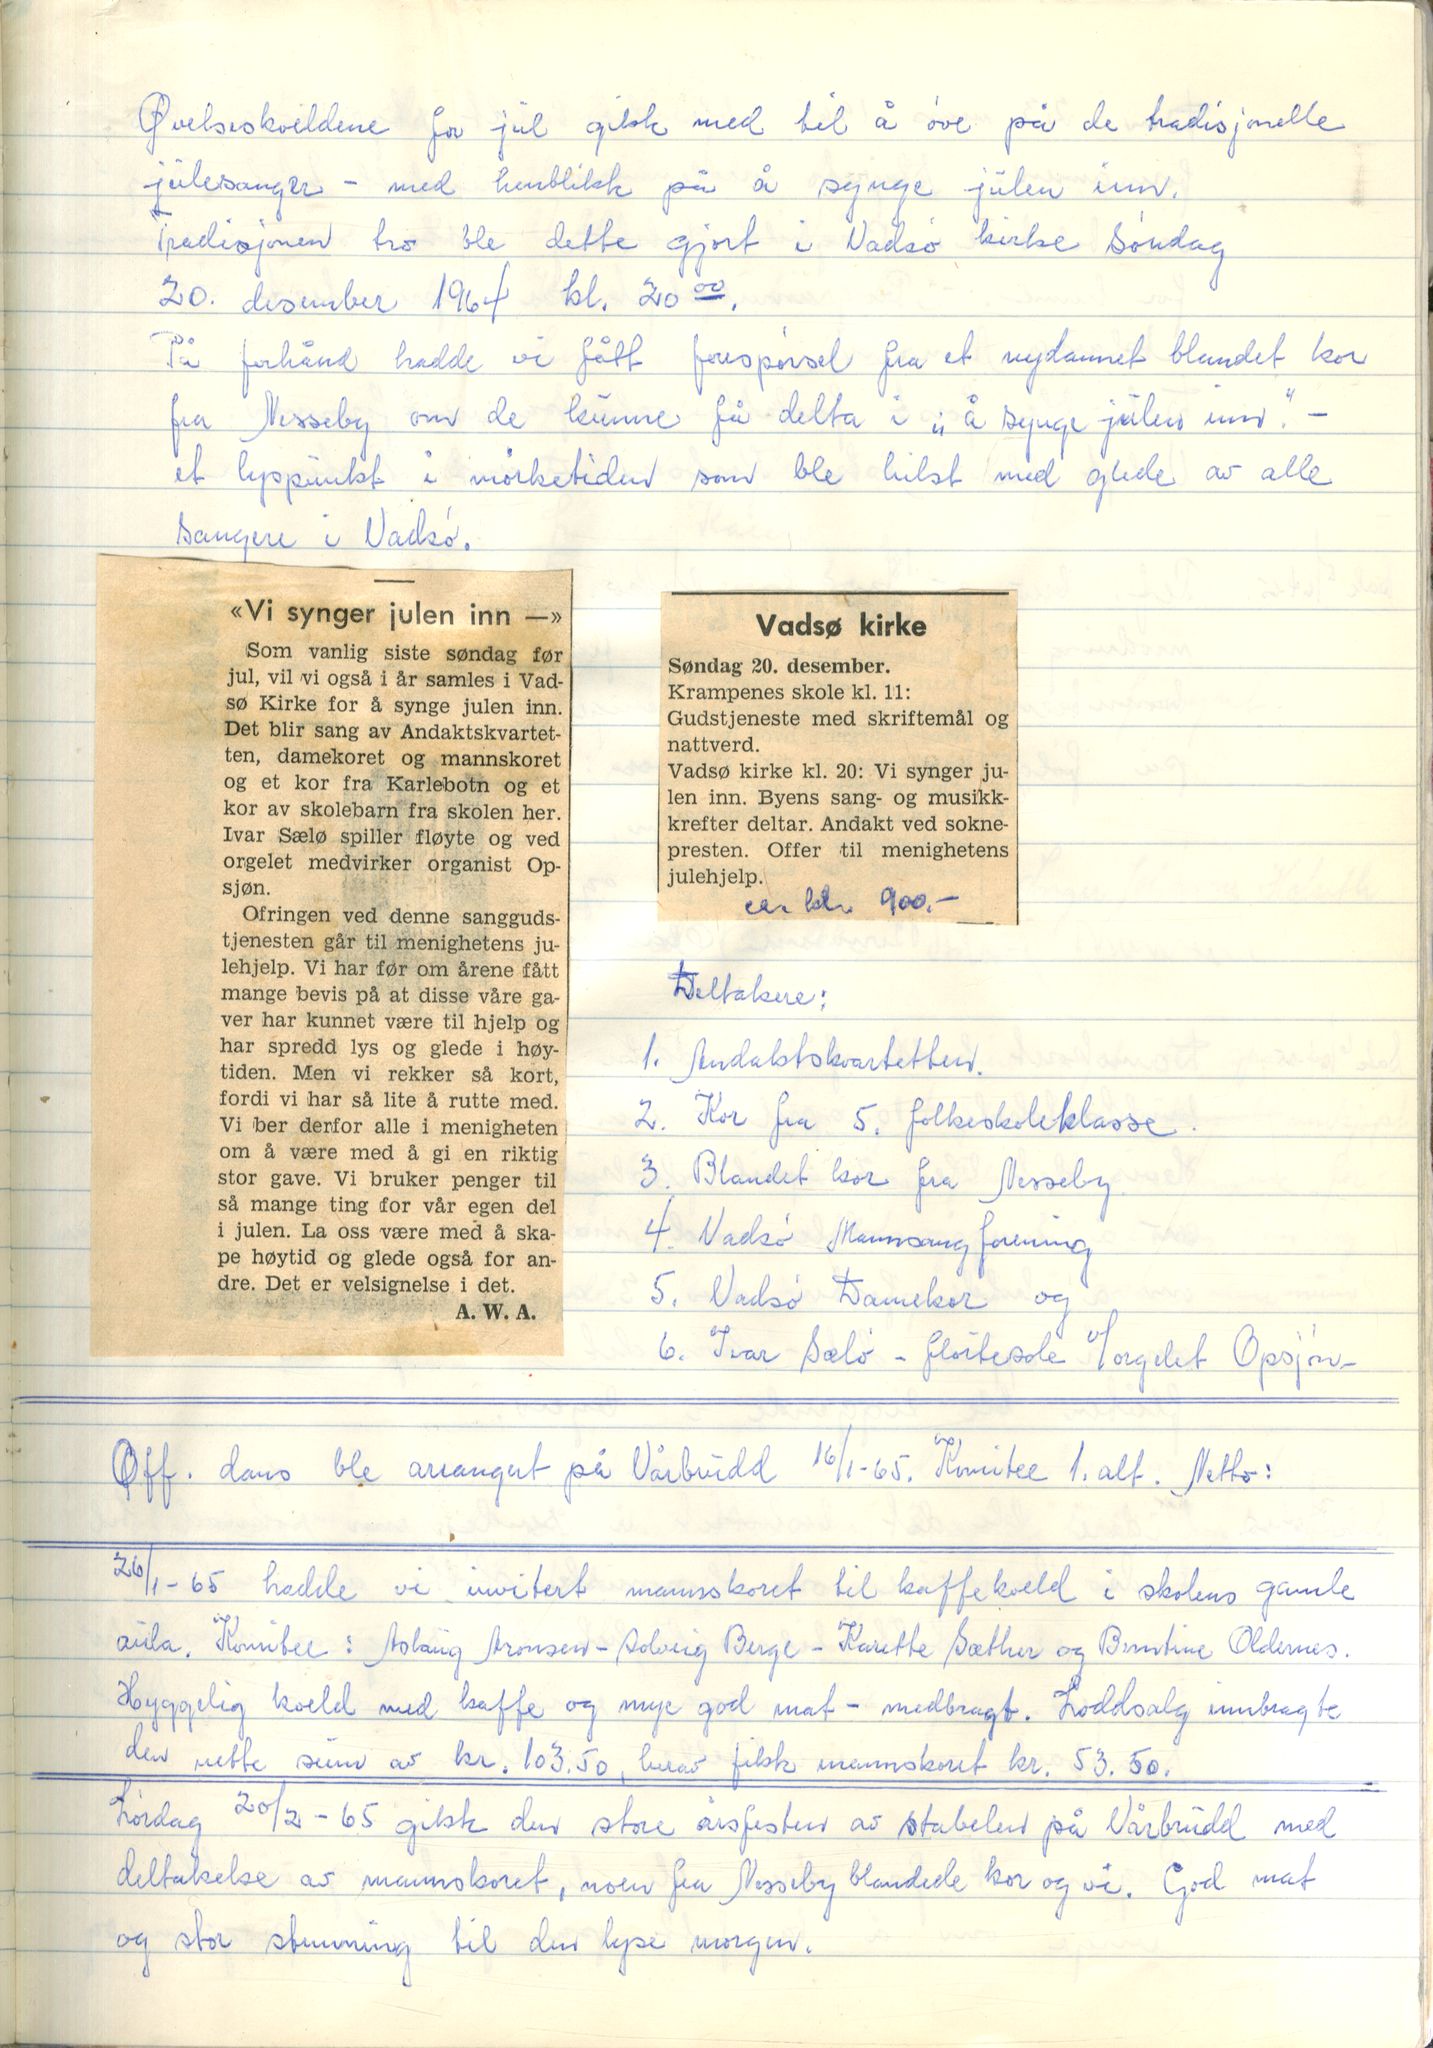 Øvelseskveldene før jul gikk med til å øve på de tradisjonelle
julesanger - med henblikk på å synge julen inn.
Tradisjonen tro ble dette gjort i Vadsø kirke Søndag
20. desember 1964 kl. 20 00.
På forhånd hadde vi fått forespørsel fra et nydannet blandet kor
fra Nesseby om de kunne få delta i „å synge julen inn." -
et lyspunkt i mørketiden som ble hilst med glede av alle
sangere i Vadsø.
«Vi synger julen inn —»
Som vanlig siste søndag før
jul, vil vi også i år samles i Vad-
sø Kirke for å synge julen inn.
Det blir sang av Andaktskvartet-
ten, damekoret og mannskoret
og et kor fra Karlebotn og et
kor av skolebarn fra skolen her.
Ivar Sælø spiller fløyte og ved
orgelet medvirker organist Op-
sjøn.
Ofringen ved denne sangguds-
tjenesten går til menighetens ju-
lehjelp. Vi har før om årene fått
mange bevis på at disse våre ga-
ver har kunnet være til hjelp og
har spredd lys og glede i høy-
tiden. Men vi rekker så kort,
fordi vi har så lite å rutte med.
Vi ber derfor alle i menigheten
om å være med å gi en riktig
stor gave. Vi bruker penger til
så mange ting for vår egen del
i julen. La oss være med å ska-
pe høytid og glede også for an-
dre. Det er velsignelse i det.
A. W. A.
Vadsø kirke
Søndag 20. desember.
Krampenes skole kl. 11:
Gudstjeneste med skriftemål og
nattverd.
Vadsø kirke kl. 20: Vi synger ju-
len inn. Byens sang- og musikk-
krefter deltar. Andakt ved sokne-
presten. Offer til menighetens
julehjelp.
ca. kr. 900.-
Deltakere:
1. Andaktskvartetten.
2. Kor fra 5. folkeskoleklasse.
3. Blandet kor fra Nesseby.
4. Vadsø Mannsangforening
5. Vadsø Damekor og
6. Ivar Sælø - fløitesolo v/orgelet Opsjøn-
Off. dans ble arrangert på Vårbrudd 16/1-65. Komitee 1. alt. Netto:
26/1-65 hadde vi invitert mannskoret til kaffekveld i skolens gamle
aula. Komitee: Aslaug Aronsen - Solveig Berge - Karette Sæther og Berntine Oldernes.
Hyggelig kveld med kaffe og mye god mat - medbragt. Loddsalg innbragte
den nette sum av kr. 103.50, herav fikk mannskoret kr. 53.50.
Lørdag 20/2-65 gikk den store årsfesten av stabelen på Vårbrudd med
deltakelse av mannskoret, noen fra Nesseby blandede kor og vi. God mat
og stor stemning til den lyse morgen.